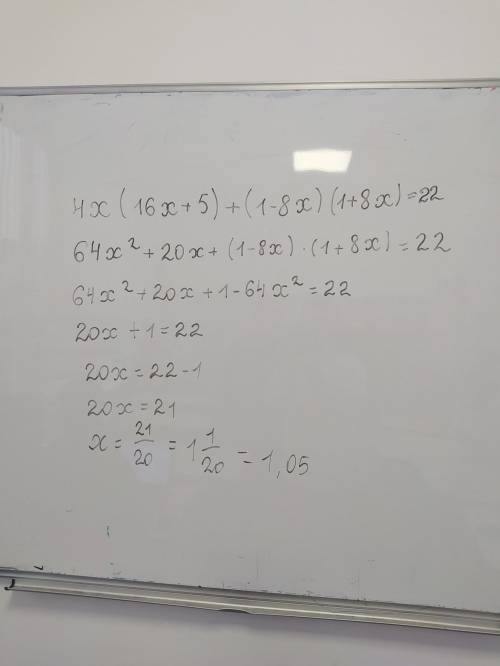 4x(16x+5)+(1-8x)(1+8x)=22
64x²+20x+(1-8x)·(1+8x)=22
64x²+20x+1-64x²=22
20x+1=22
20x=22-1
20x=21
x=21/20=1 1/20=1,05